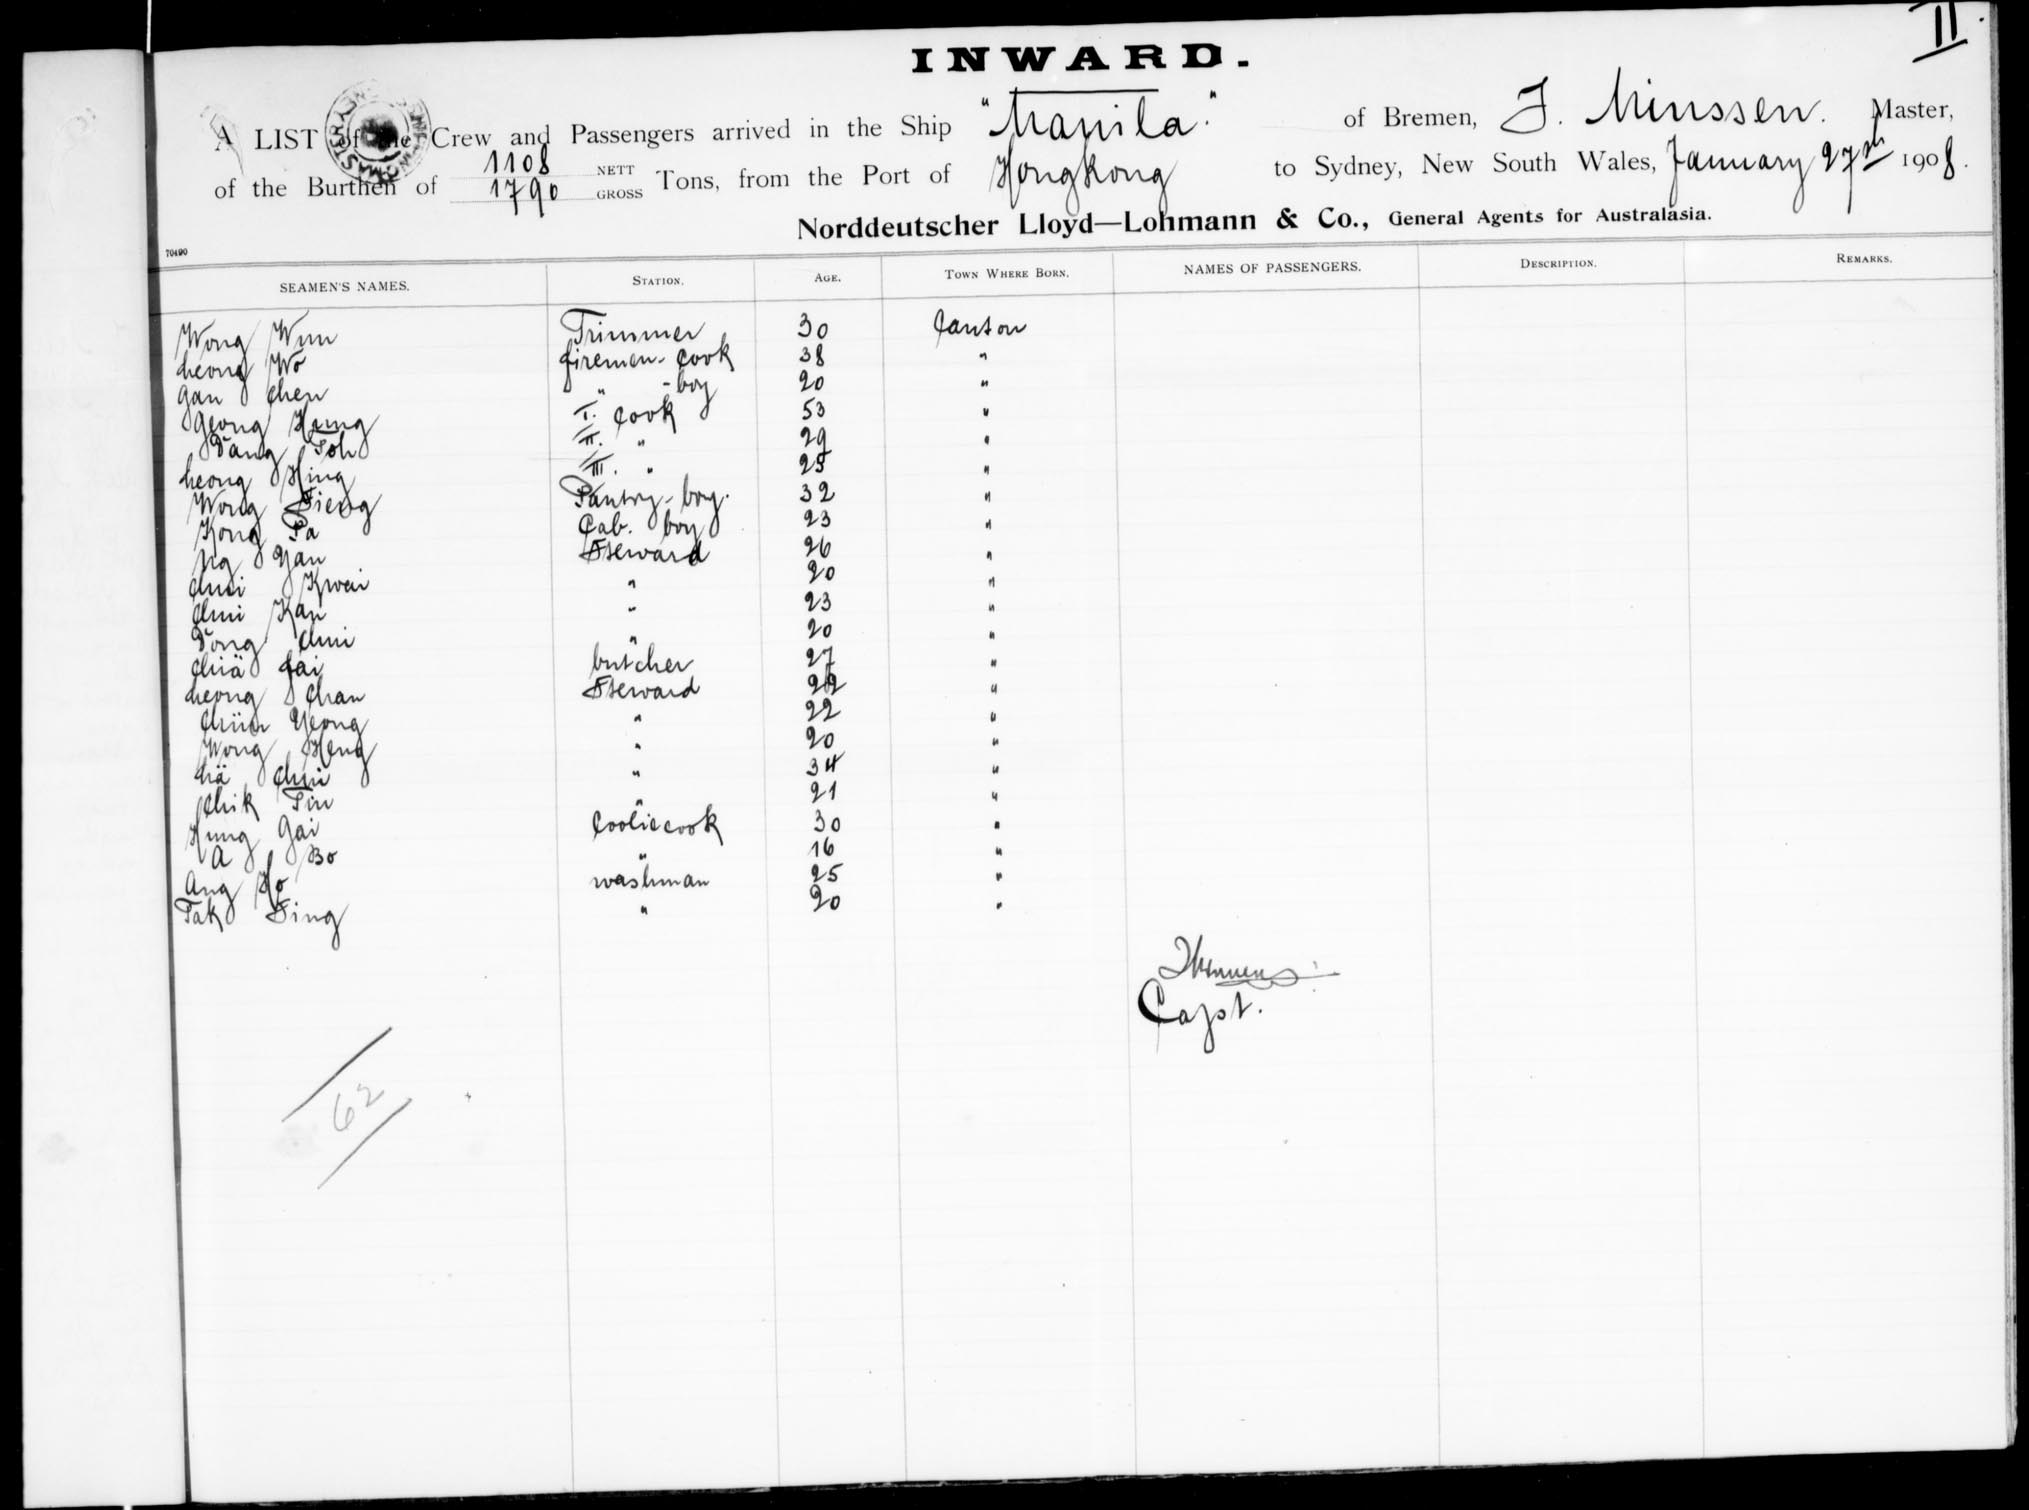 II.
INWARD.
A LIST of the Crew and Passengers arrived in the Ship "Manila." of Bremen, J. Minssen. Master,
of the Burthen of 1108 NETT 1790 GROSS Tons, from the Port of Hongkong to Sydney, New South Wales, January 27th 1908.
Norddeutscher Lloyd—Lohmann & Co., General Agents for Australasia.
70490
SEAMEN'S NAMES. STATION. AGE. TOWN WHERE BORN. NAMES OF PASSENGERS. DESCRIPTION. REMARKS.
Wong Wun Trimmer 30 Canton
Leong Wo firemen-cook 38 "
Gan Chen " -boy 20 "
Yeong Hung I. Cook 53 "
Tang Toh II. " 29 "
Leong Hing III. " 25 "
Wong Sieng Pantry-boy. 32 "
Kong Pa Cab. boy 23 "
Ng Yan Steward 26 "
Chui Kwai " 20 "
Chui Kan " 23 "
Tong Chui " 20 "
Chiä Lai butcher 27 "
Leong Chan Steward "
Chün Yeong " 22 "
Wong Heng " 20 "
Liä Chui " 34 "
Chik Tin " 21 "
Hung Gai Cooliecook 30 "
A Bo " 16 "
Ang Ho washman 25 "
Tak Sing " 20 "
Capt.
62